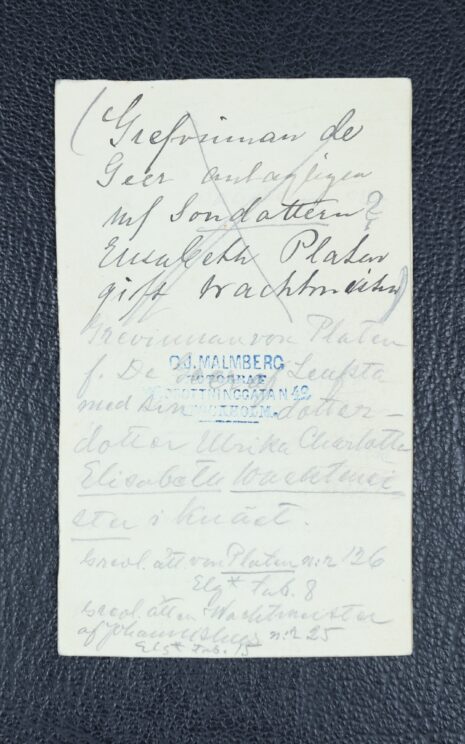 (Grefvinnan de
Geer antagligen
mf Sondottern ?
Elisabeth Platen
gift Wachtmeister)
Grevinnan von Platen
f. De Geer af Leufsta
med sin dotter-
dotter Ulrika Charlotta
Elisabeth Wachtmei
ster i knäet.
C.J. MALMBERG
FOTOGRAF
DROTTNINGGATAN 42
STOCKHOLM.
Grevl. ätt von Platen n:r 136
Elgst Tab. 8
Grevl. ätten Wachtmeister
af Johannishus n:r 25
Elgst Tab. 15